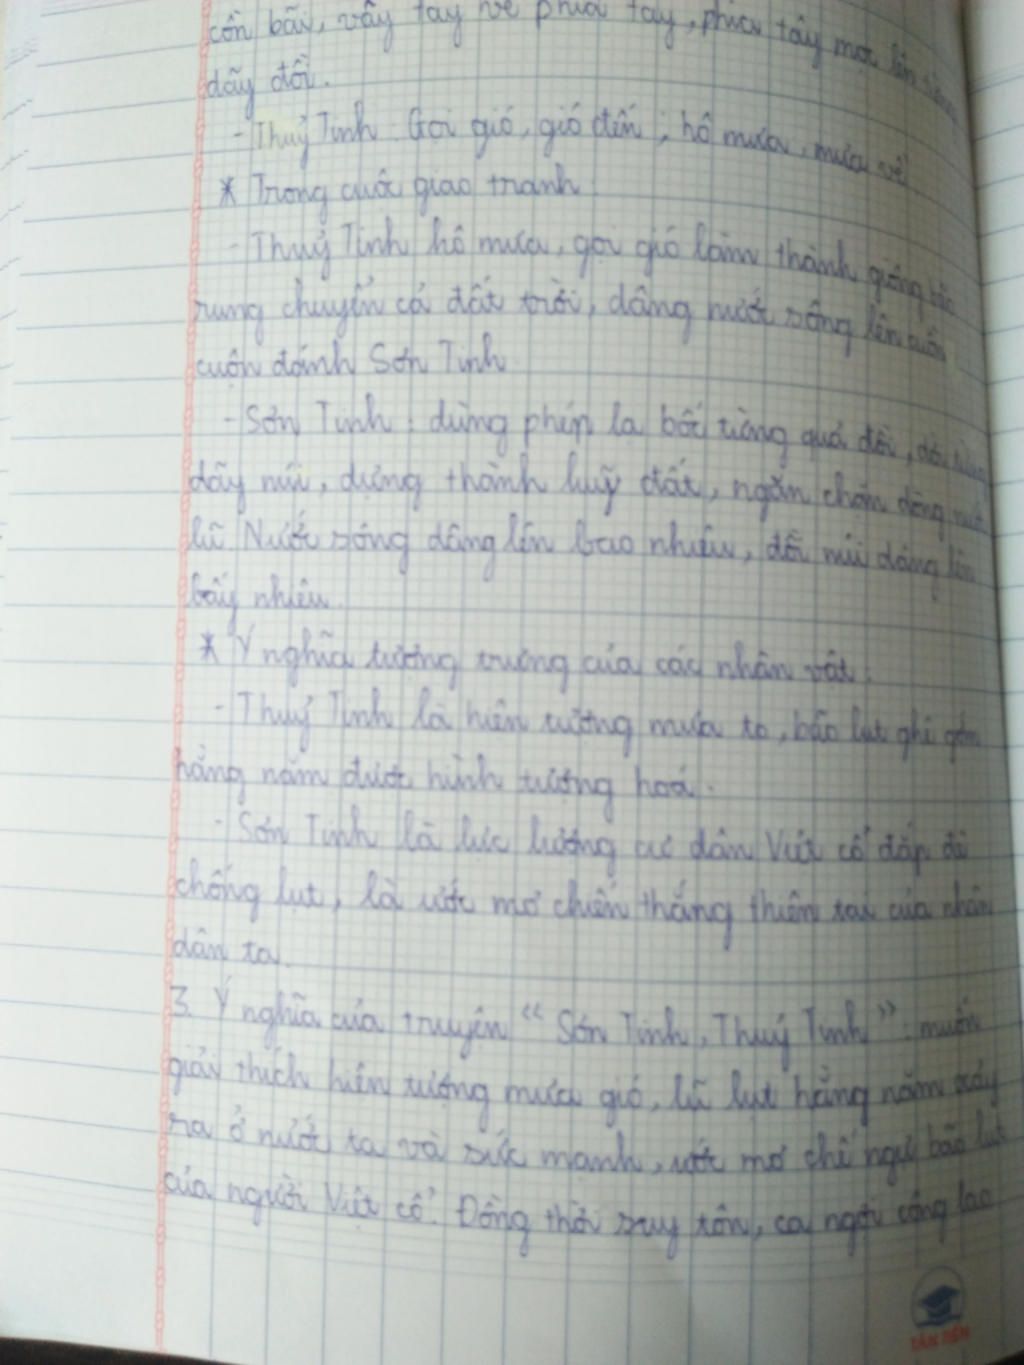 cồn bãi, vẫy tay về phía tây, phía tây mọc lên từng
dãy đồi.
- Thuỷ Tinh: Gọi gió, gió đến; hô mưa, mưa về
* Trong cuộc giao tranh:
- Thuỷ Tinh hô mưa, gọi gió làm thành giông bão
rung chuyển cả đất trời, dâng nước sông lên cuồn
cuộn đánh Sơn Tinh
- Sơn Tinh: dùng phép lạ bốc từng quả đồi, dời từng
dãy núi, dựng thành luỹ đất, ngăn chặn dòng nước
lũ. Nước sông dâng lên bao nhiêu, đồi núi dâng lên
bấy nhiêu.
* Ý nghĩa tượng trưng của các nhân vật:
- Thuỷ Tinh là hiện tượng mưa to, bão lụt ghê gớm
hằng năm được hình tượng hoá.
- Sơn Tinh là lực lượng cư dân Việt cổ đắp đê
chống lụt, là ước mơ chiến thắng thiên tai của nhân
dân ta.
3. Ý nghĩa của truyện "Sơn Tinh, Thuỷ Tinh": muốn
giải thích hiện tượng mưa gió, lũ lụt hằng năm xảy
ra ở nước ta và sức mạnh, ước mơ chế ngự bão lụt
của người Việt cổ. Đồng thời suy tôn, ca ngợi công lao
TÂN TIẾN